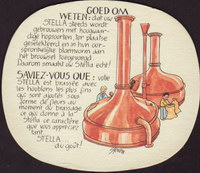 GOED OM
WETEN: dat uw
STELLA steeds wordt
gebrouwen met hoogwaar-
dige hopsoorten, ter plaatse
geselekteerd en in hun oor-
spronkelijke bloemvorm aan
het brouwsel toegevoegd.
Daarom smaakt uw Stella echt!
SAVIEZ-VOUS QUE: votre
STELLA est brassée avec
les houblons les plus fins
qui sont ajoutés sous
forme de fleurs au
moment du brassage
ce qui donne à la
Stella ce caractère
que vous appréciez
tant.
STELLA
du goût!